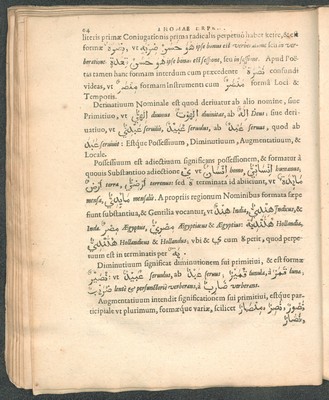 64 THOMAE ERPE
literis primæ Coniugationis prima radicalis perpetuò habet kesre, & est
formæ نِصْرَةٌ, vt هو حسن ضربة ipse bonus est verberatione seu in ver-
beratione, هو حسن قعدة ipse bonus est sessione, seu in sessione. Apud Poë-
tas tamen hanc formam interdum cum præcedente نَصْرَة confundi
videas, vt مِنْصَرٌ formam instrumenti cum مَنْصَرٌ formâ Loci &
Temporis.
Derivatiuum Nominale est quod deriuatur ab alio nomine, siue
Primitiuo, vt إلهي diuinus, diuinitas, ab إله Deus: siue deri-
uatiuo, vt عبيدي seruilis, عبيد seruulus, ab عبد seruus, quod ab
عبد seruiuit: Estque Possessiuum, Diminutiuum, Augmentatiuum, &
Locale.
Possessiuum est adiectiuum significans possessionem, & formatur à
quouis Substantiuo adiectione يّ, vt إنسان homo, إنساني humanus,
أرض terra, أرضي terrenus: sed ة terminata id abiiciunt, vt مايدة
mensa, mensalis. A propriis regionum Nominibus formata sæpe
sunt substantiua, & Gentilia vocantur, vt هند India, هندي Indicus, &
Indus. مصر Ægyptus, مصري Ægyptiacus & Ægyptius:
Hollandicus & Hollandus; vbi & ي cum Kesre, quod perpe-
tuum est in terminatis per يه.
Diminutiuum significat diminutionem sui primitiui, & est formæ
نُصَيْرٌ, vt عبيد seruulus, ab عبد seruus, قمير lunula, à قمر luna,
lentè & perfunctoriè verberans, à ضارب verberans.
Augmentatiuum intendit significationem sui primitiui, estque par-
ticipiale vt plurimum, formæque variæ, scilicet مِنْصَارٌ, نَصُورٌ,
نَصَّارٌ